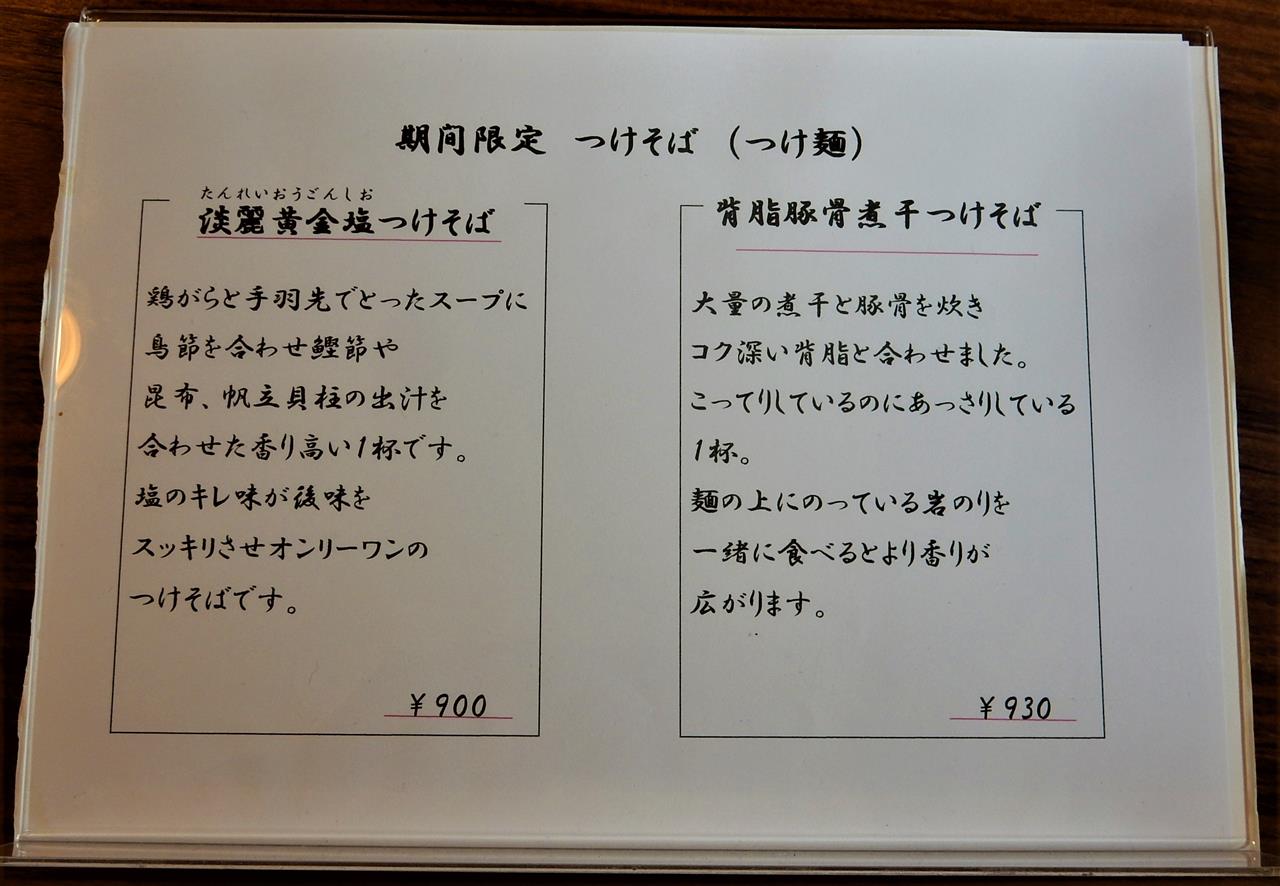 期間限定 つけそば (つけ麺)
たんれいおうごんしお
淡麗黄金塩つけそば
鶏がらと手羽先でとったスープに
鳥節を合わせ鰹節や
昆布、帆立貝柱の出汁を
合わせた香り高い1杯です。
塩のキレ味が後味を
スッキリさせオンリーワンの
つけそばです。
¥900
背脂豚骨煮干つけそば
大量の煮干と豚骨を炊き
コク深い背脂と合わせました。
こってりしているのにあっさりしている
1杯。
麺の上にのっている岩のりを
一緒に食べるとより香りが
広がります。
¥930